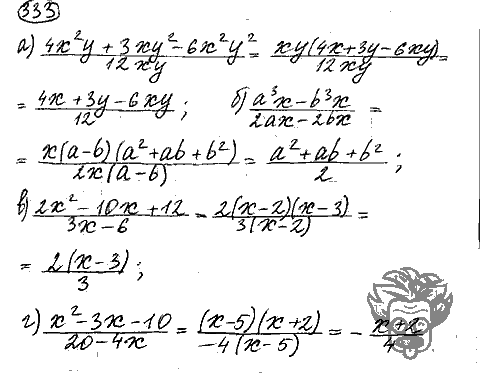 333
а) (4x²y + 3xy² - 6x²y²)/(12xy) = (xy(4x+3y-6xy))/(12xy) =
= (4x+3y-6xy)/12 ; б) (a³x - b³x)/(2ax - 2bx) =
= (x(a-b)(a²+ab+b²))/(2x(a-b)) = (a²+ab+b²)/2 ;
в) (2x² - 10x + 12)/(3x - 6) = (2(x-2)(x-3))/(3(x-2)) =
= (2(x-3))/3 ;
г) (x² - 3x - 10)/(20 - 4x) = ((x-5)(x+2))/(-4(x-5)) = - (x+2)/4